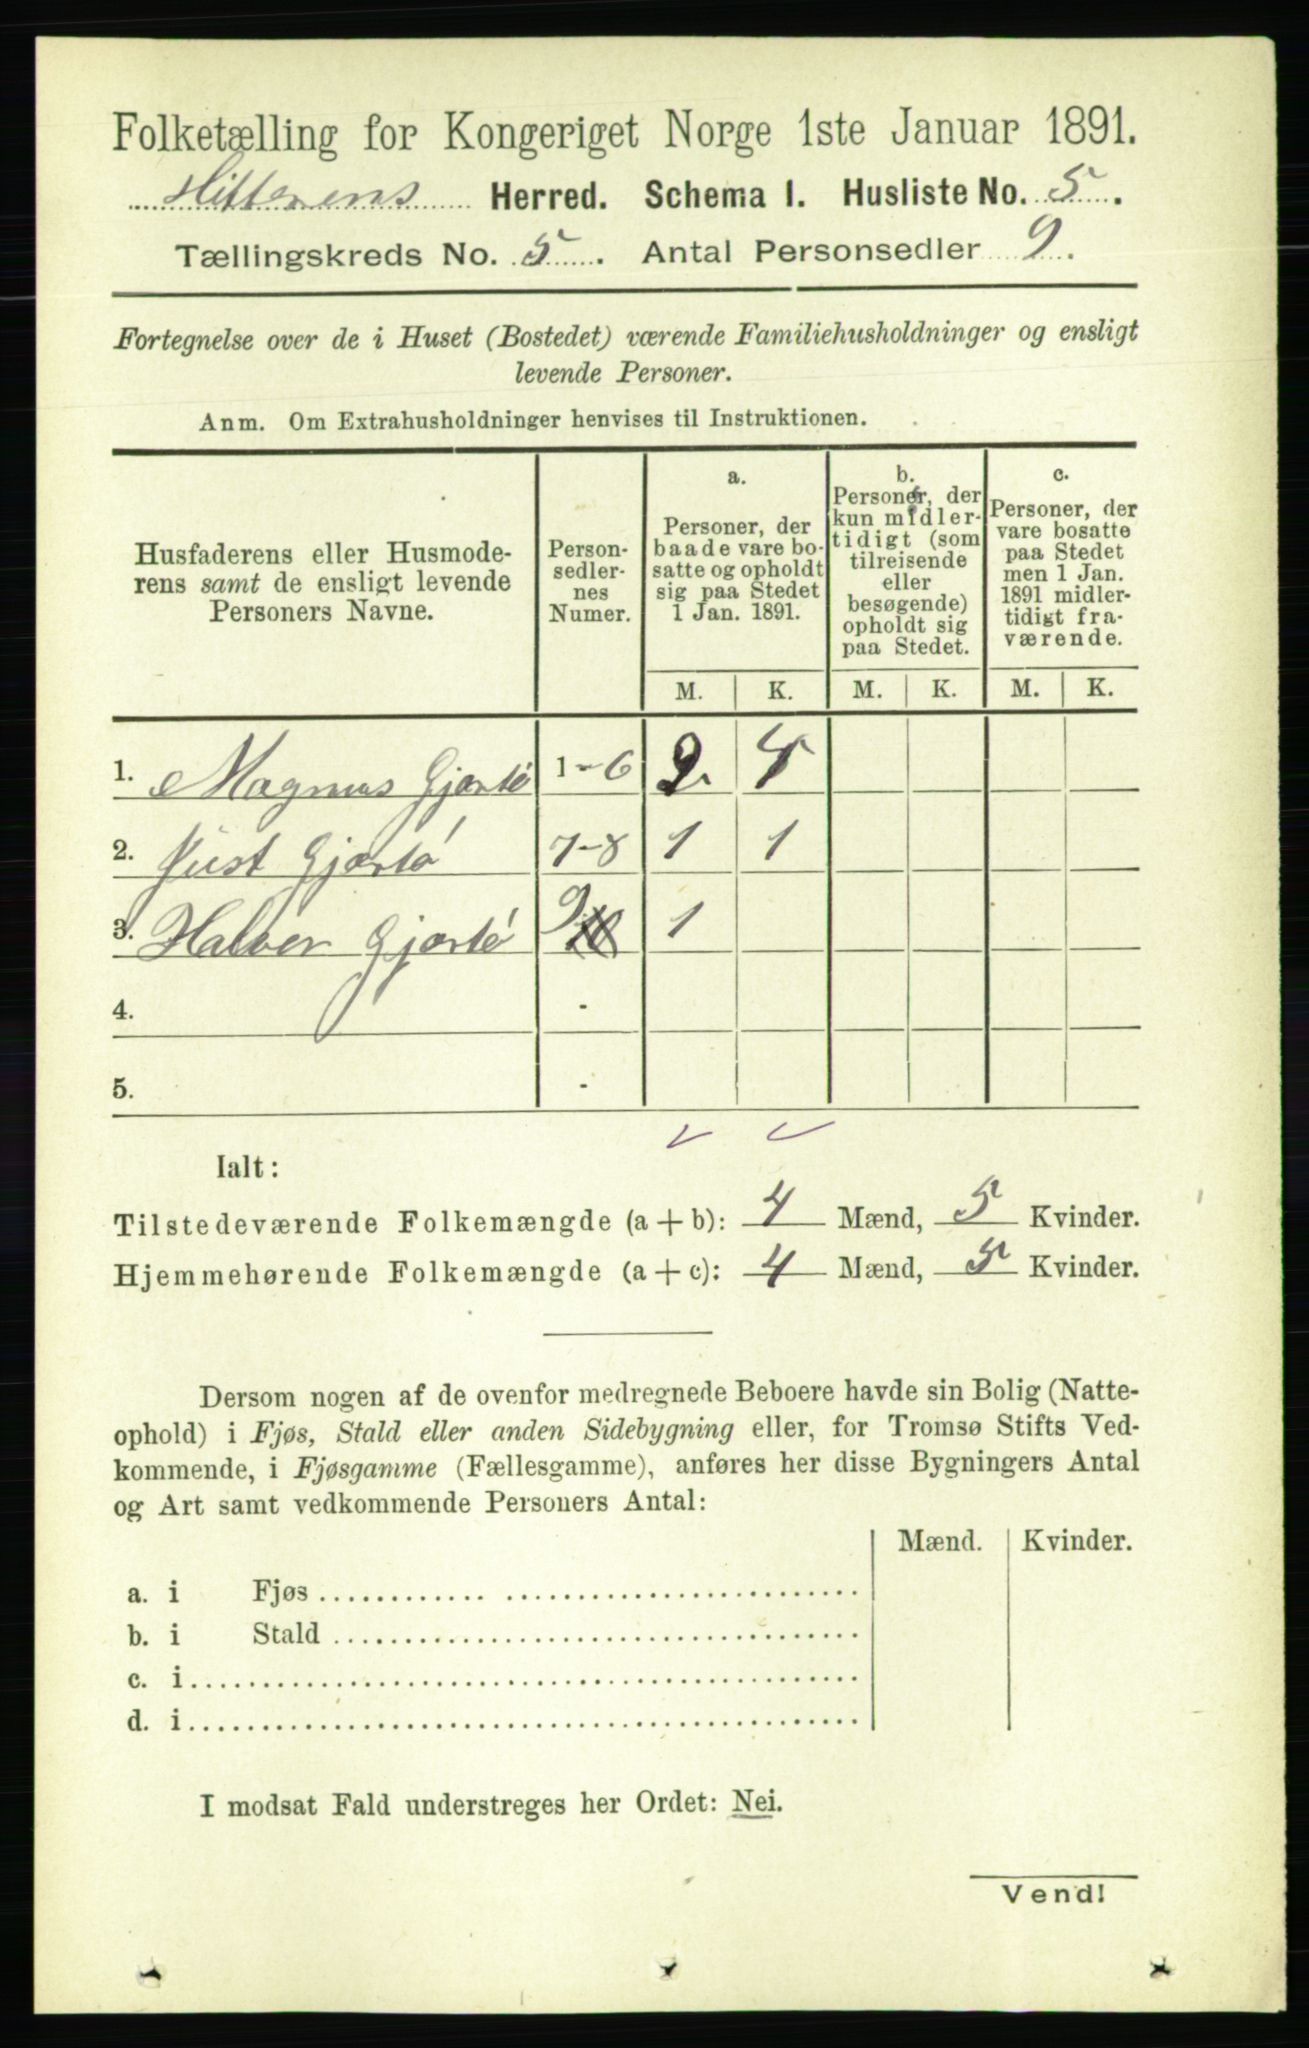 Folketælling for Kongeriget Norge 1ste Januar 1891.
Hitterens Herred. Schema I. Husliste No. 5.
Tællingskreds No. 5. Antal Personsedler 9.
Fortegnelse over de i Huset (Bostedet) værende Familiehusholdninger og ensligt
levende Personer.
Anm. Om Extrahusholdninger henvises til Instruktionen.
Husfaderens eller Husmode-
rens samt de ensligt levende
Personers Navne.
Person-
sedler-
nes
Numer.
a.
Personer, der
baade vare bo-
satte og opholdt
sig paa Stedet
1 Jan. 1891.
b.
Personer, der
kun midler-
tidigt (som
tilreisende
eller
besøgende)
opholdt sig
paa Stedet.
c.
Personer, der
vare bosatte
paa Stedet
men 1 Jan.
1891 midler-
tidigt fra-
værende.
M. K. M. K. M. K.
1. Magnus Gjørtø 1-6 2 4
2. Just Gjørtø 7-8 1 1
3. Halver Gjørtø 9 1
4. -
5. -
Ialt:
Tilstedeværende Folkemængde (a + b): 4 Mænd, 5 Kvinder.
Hjemmehørende Folkemængde (a + c): 4 Mænd, 5 Kvinder.
Dersom nogen af de ovenfor medregnede Beboere havde sin Bolig (Natte-
ophold) i Fjøs, Stald eller anden Sidebygning eller, for Tromsø Stifts Ved-
kommende, i Fjøsgamme (Fællesgamme), anføres her disse Bygningers Antal
og Art samt vedkommende Personers Antal:
Mænd. Kvinder.
a. i Fjøs
b. i Stald
c. i
d. i
I modsat Fald understreges her Ordet: Nei.
Vend!